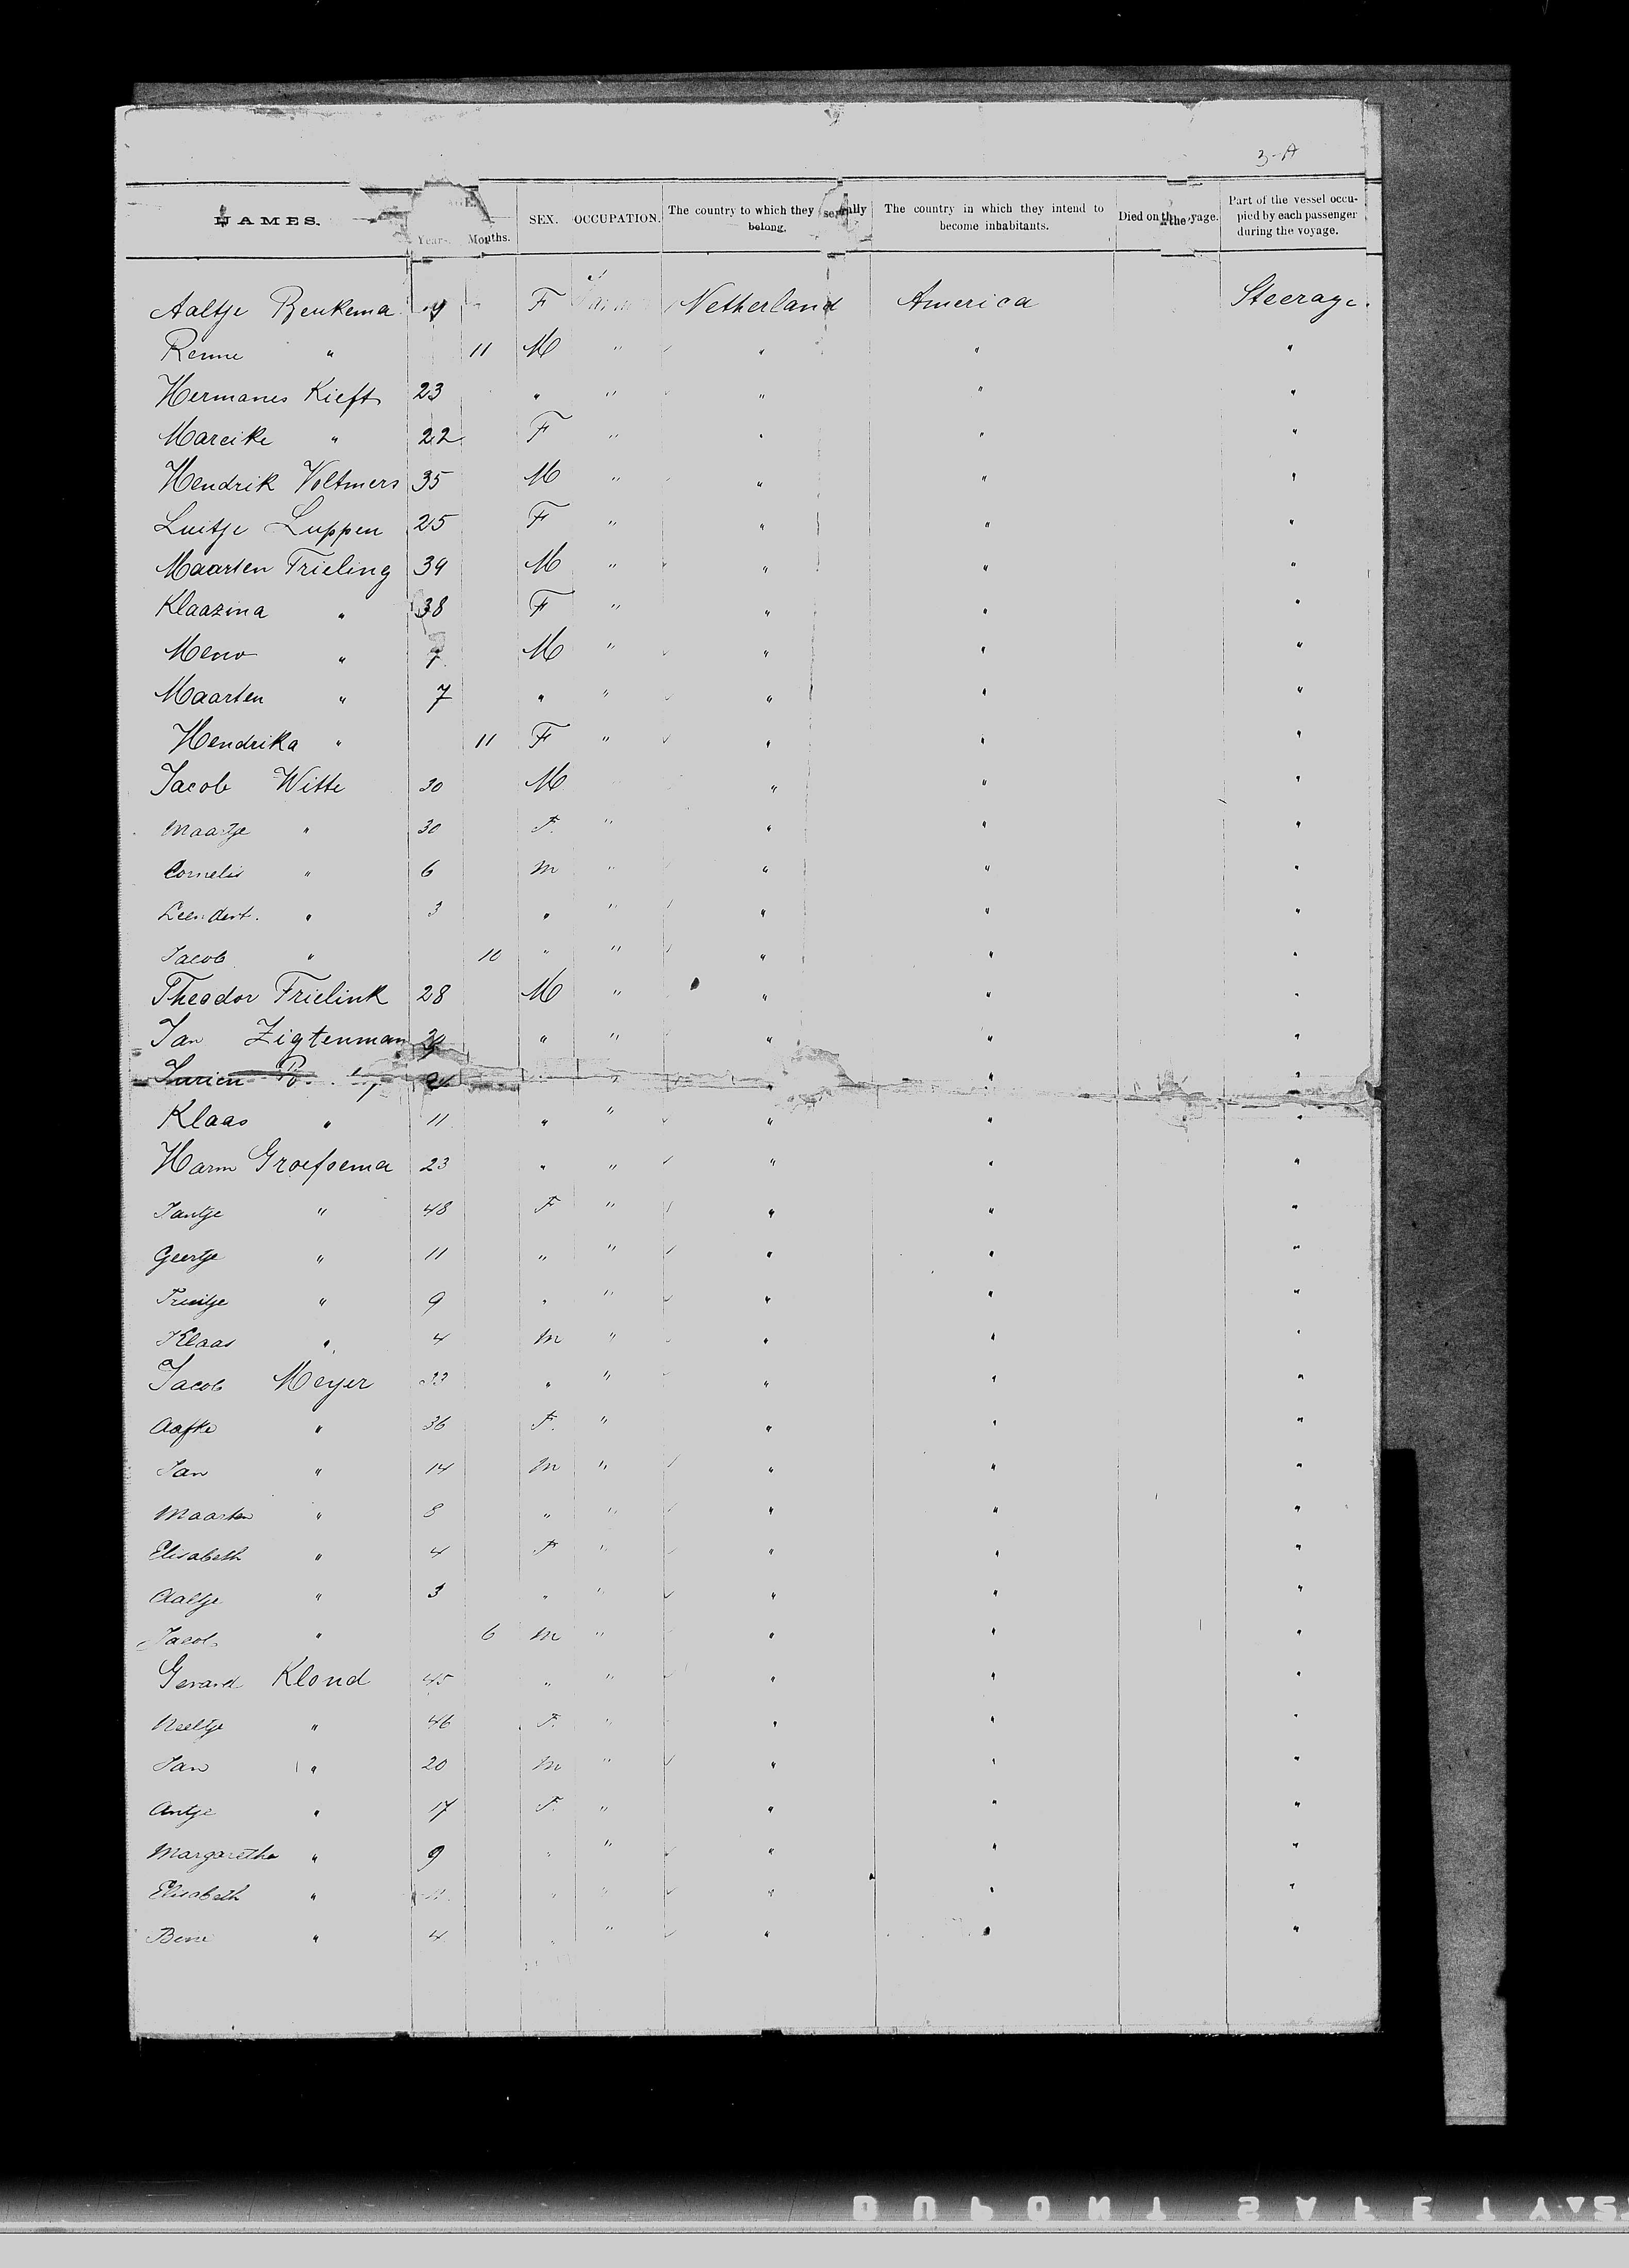 3-A
NAMES. AGE. Years. Months. SEX. OCCUPATION. The country to which they severally belong. The country in which they intend to become inhabitants. Died on the voyage. Part of the vessel occupied by each passenger during the voyage.
Aaltje Beukema F Netherland America Steerage.
Renne " 11 M " " " "
Hermanes Kieft 23 " " " " "
Mareike " 22 F " " " "
Hendrik Voltmers 35 M " " " "
Luitje Luppen 25 F " " " "
Maarten Frieling 39 M " " " "
Klaazina " 38 F " " " "
Meno " M " " " "
Maarten " 7 " " " " "
Hendrika " 11 F " " " "
Jacob Witte 30 M " " "
Maatje " 30 F. " " " "
Cornelis " 6 M " " " "
Leendert. " 3 " " " " "
Jacob " 10 " " " " "
Theodor Frielink 28 M " " " "
Jan Zigtenman " " " " "
Jurien " " " "
Klaas " 11 " " " " "
Harm Groefsema 23 " " " " "
Jantje " 48 F " " " "
Geertje " 11 " " " " "
Trientje " 9 " " " " "
Klaas " 4 M " " " "
Jacob Meyer 33 " " " " "
Aafke " 36 F. " " " "
Jan " 14 M " " " "
Maarten " 8 " " " " "
Elisabeth " 4 F " " " "
Aaltje " 3 " " " " "
Jacob " 6 M " " " "
Gerard Klond 45 " " " " "
Neeltje " 46 F. " " " "
Jan " 20 M " " " "
Antje " 17 F. " " " "
Margaretha " 9 " " " " "
Elisabeth " 11 " " " " "
Bene " 4 " " " " "
DUPONT SAFETY